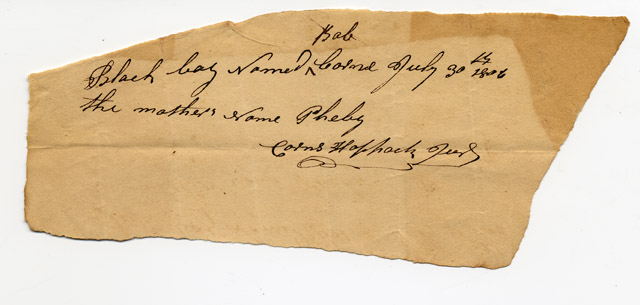 Bob
Black boy Named ^ Borne July 30th 1806
the mothers Name Pheby
Corns Hoppock Jur